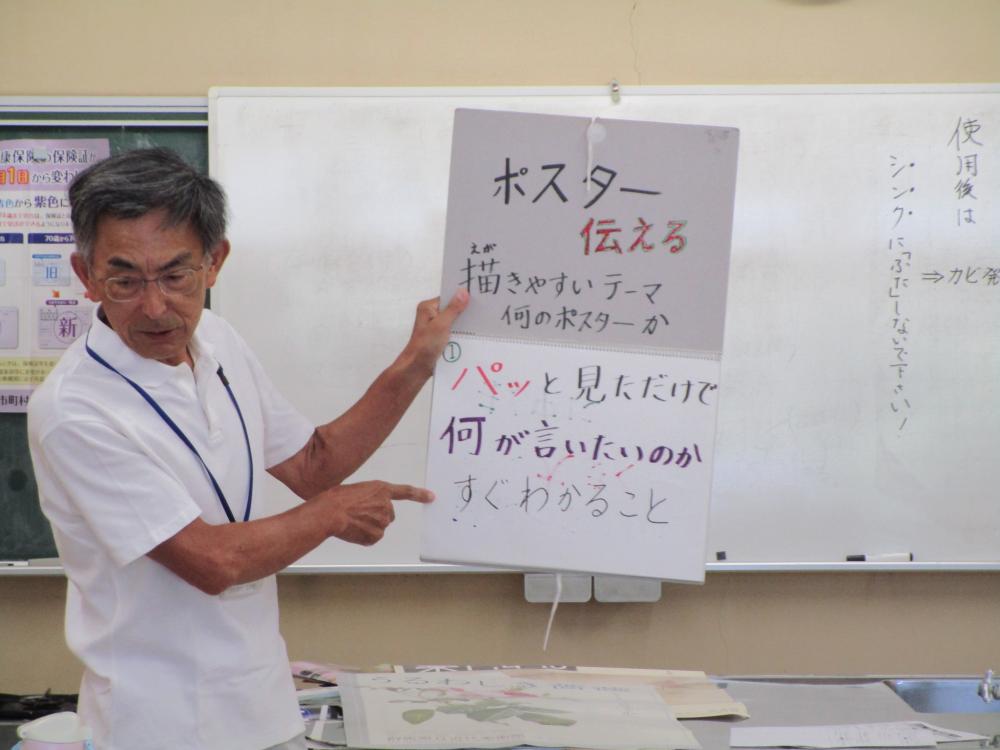 ポスター
伝える
えが
描きやすいテーマ
何のポスターか
①
パッと見ただけで
何が言いたいのか
すぐわかること
使用後は
シンクに「ふた」しないで下さい!
⇒カビ発
康保険の保険証が
月1日から変わ
色から紫色に
70歳から
旧
新
市町村